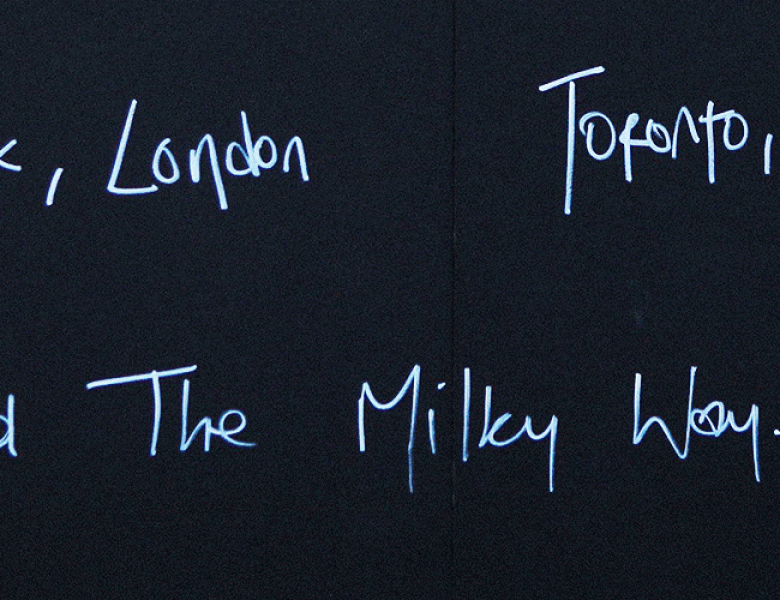 , London Toronto,
The Milky Way.